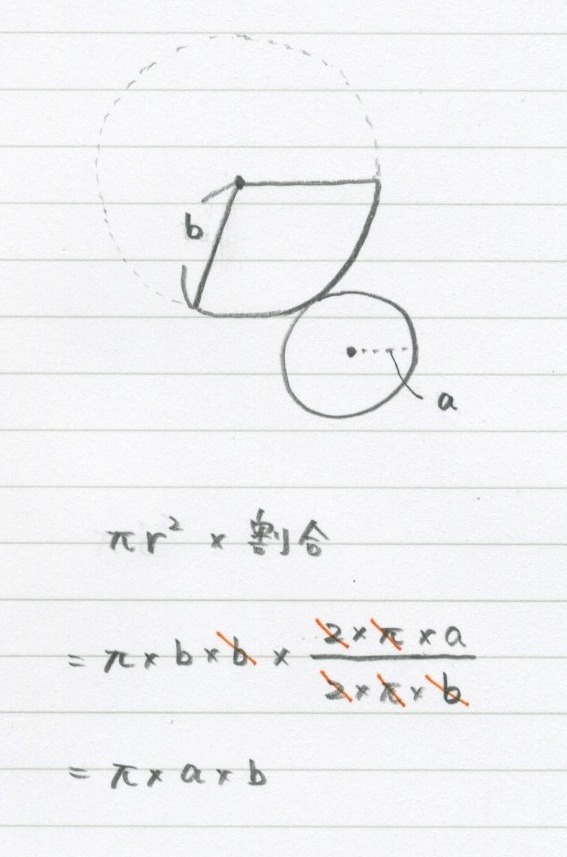 b
a
πr² × 割合
= π × b × b × 2 × π × a / 2 × π × b
= π × a × b